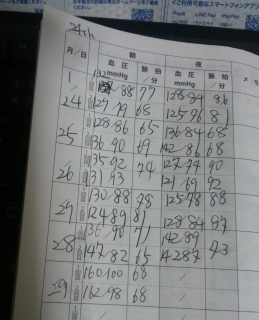 24th
朝 夜
月/日 血圧 脈拍 血圧 脈拍 メモ
mmHg /分 mmHg /分
1 132 88 77 128 84 86
24 127 79 68 125 76 81
25 128 86 65 136 84 68
136 90 69 142 86 68
26 135 92 74 127 74 90
131 93 121 69 92
27 130 88 78 125 78 88
124 89 81 128 84 87
28 136 90 71 142 89
147 82 65 142 87 73
29 160 100 68
162 98 68